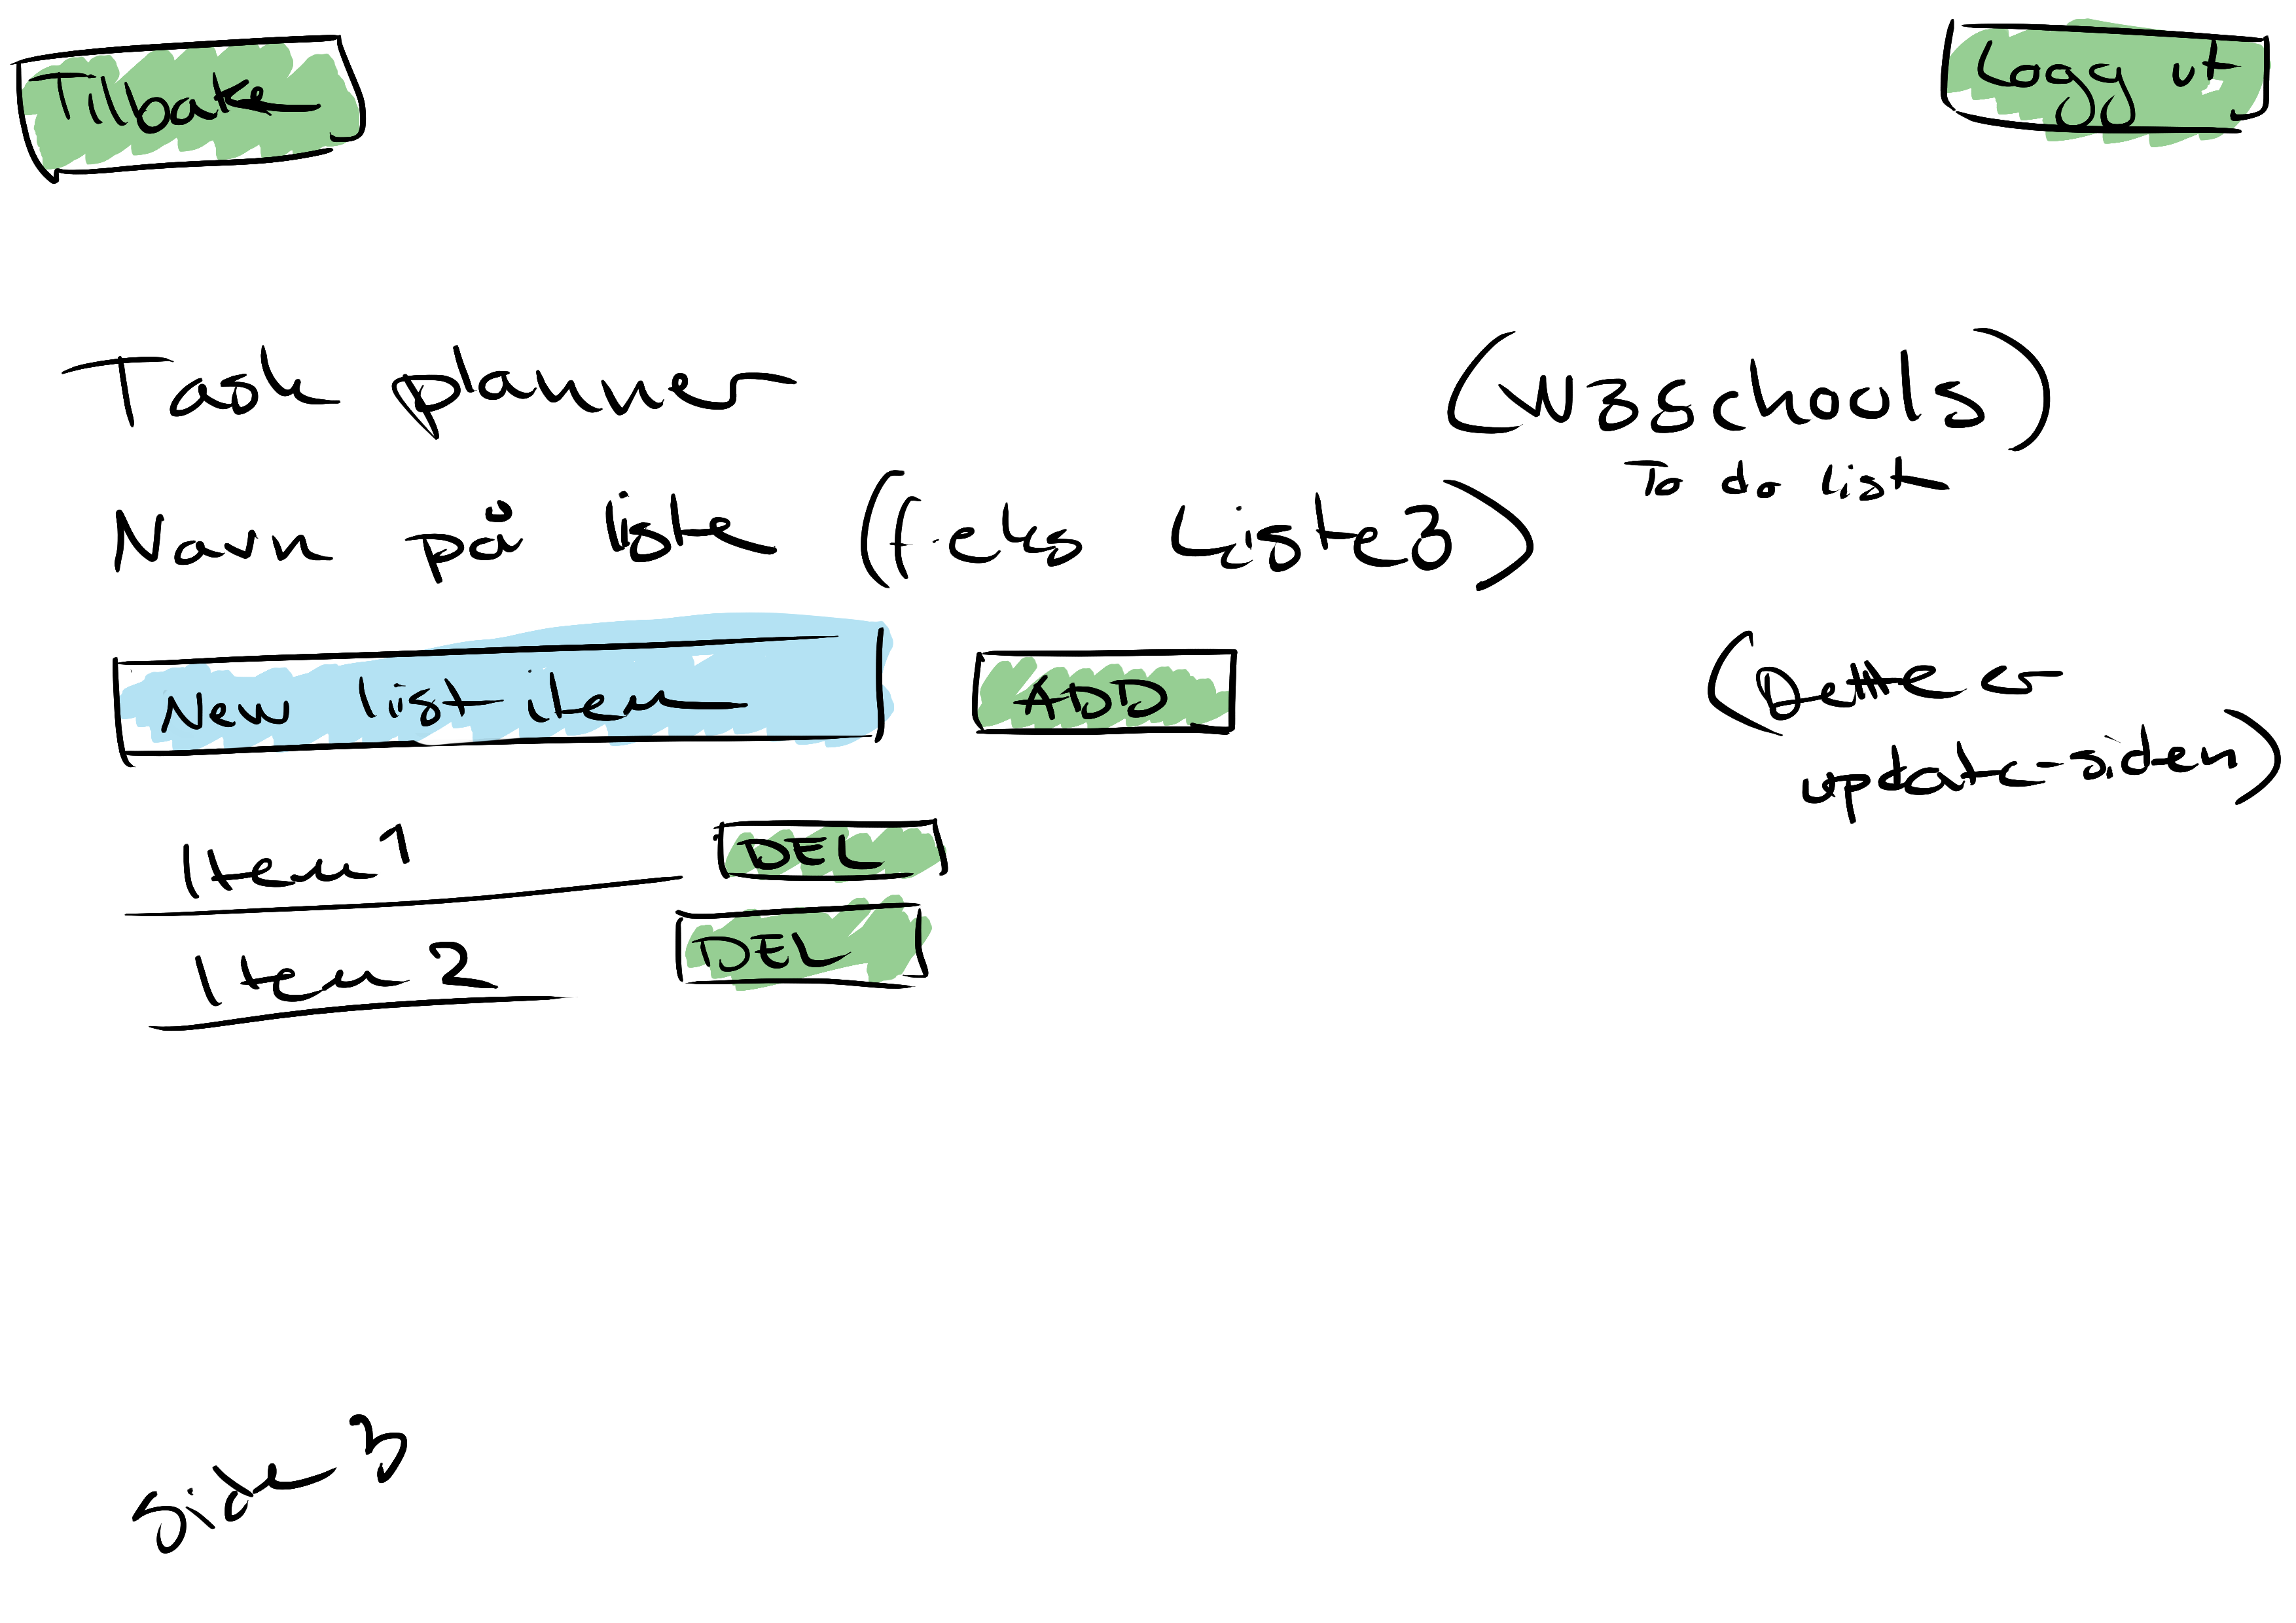 Tilbake
Logg ut
Task planner
(W3schools)
To do list
Navn på liste (f.eks Liste3)
New list item
ADD
(Dette er
update-siden)
Item 1
DEL
Item 2
DEL
Side 3